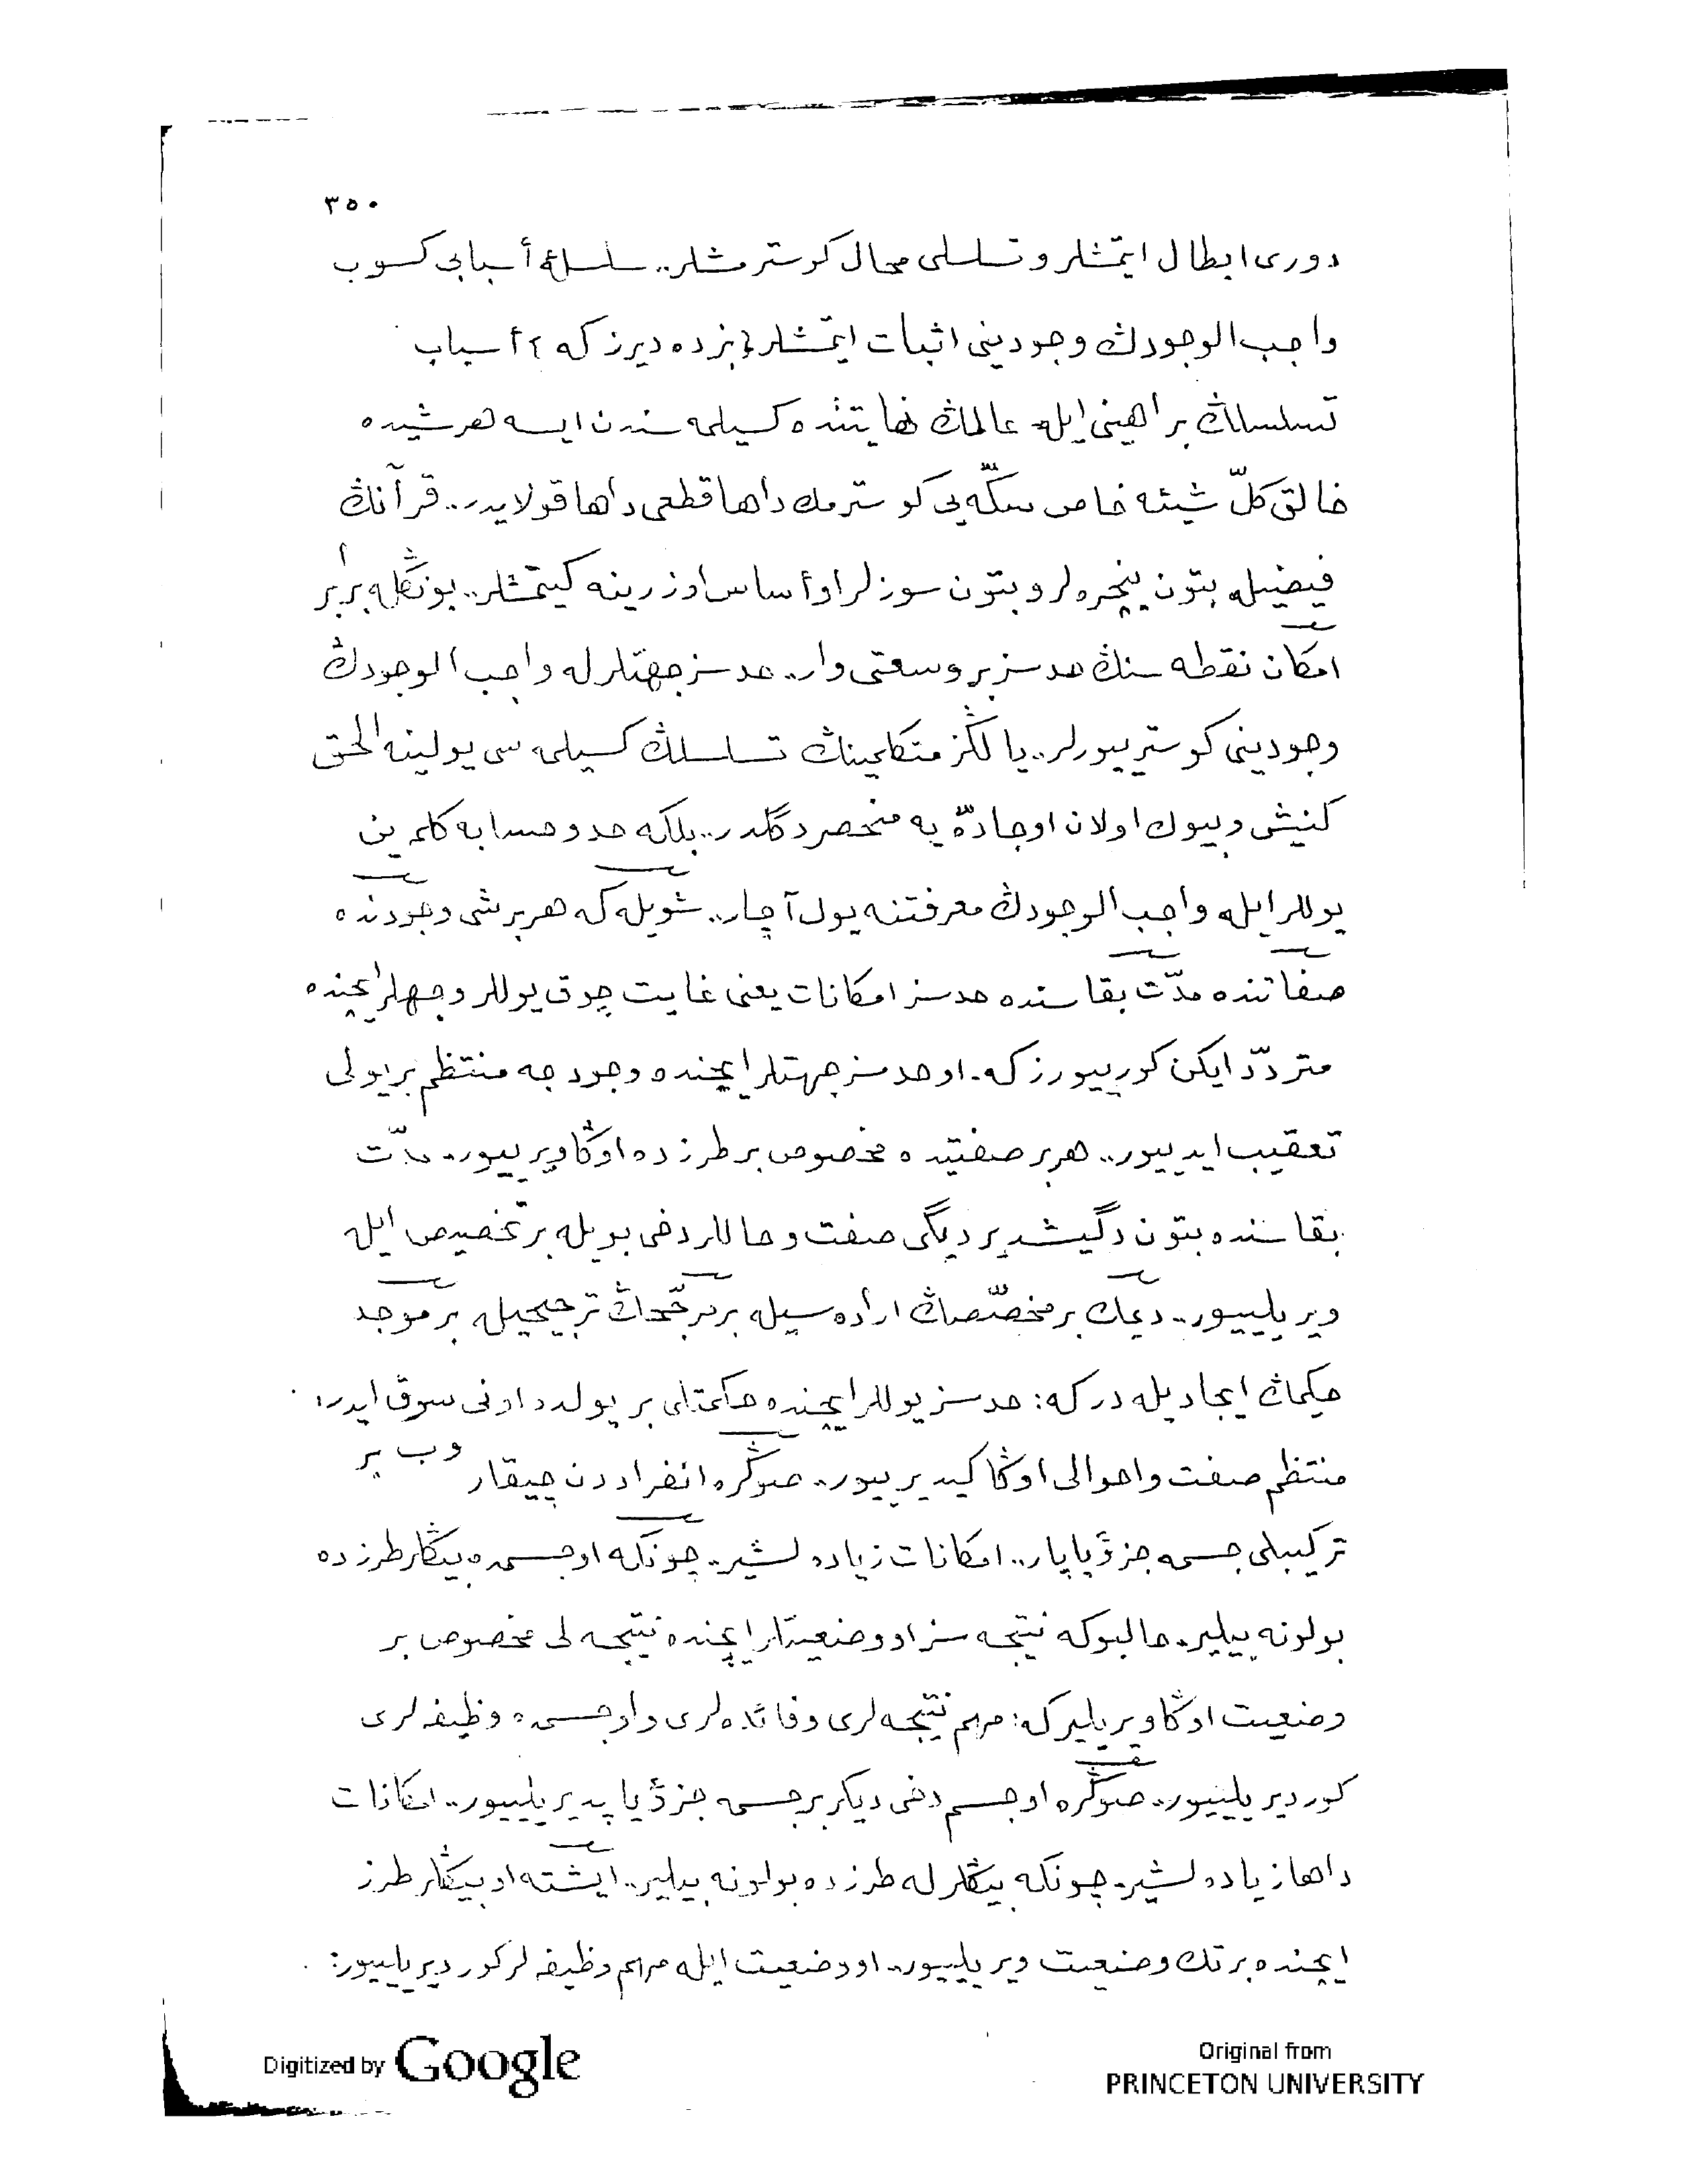 ٣٥٠
دورى ابطال ايتمشلر و تسلسلى محال كوسترمشلر.. سلسلهٔ أسبابى كسوب
واجب الوجودڭ وجودينى اثبات ايتمشلر؛ بزده ديرز كه؛ أسباب
تسلسلڭ براهينى ايله عالمڭ نهايتنده كسيلمه سندن ايسه هرشيده
خالق كلّ شيئه خاص سكّه يى كوسترمك داها قطعى داها قولايدر.. قرآنڭ
فيضيله بتون پنجره لر و بتون سوزلر او أساس اوزرينه كيتمشلر.. بونڭله برابر
امكان نقطه سنڭ حدسز بر وسعتى وار.. حدسز جهتلرله واجب الوجودڭ
وجودينى كوستريیورلر.. يالڭز متكلمينڭ تسلسلڭ كسيلمه سى يولينه الحق
كنيش و بيوك اولان او جادّه يه منحصر دگلدر.. بلكه حد و حسابه كلمه ين
يوللر ايله واجب الوجودڭ معرفتنه يول آچار.. شويله كه هر بر شى وجودنده
صفاتنده مدّت بقاسنده حدسز امكانات يعنى غايت چوق يوللر و جهتلر ايچنده
متردّد ايكن كورييورز كه. او حدسز جهتلر ايچنده وجودجه منتظم بر يولى
تعقيب ايدييور.. هر بر صفتيده مخصوص بر طرزده اوڭا ويرييور.. مدّت
بقاسنده بتون دگيشديرديگى صفت و حاللر دخى بويله بر تخصيص ايله
ويريلييور.. ديمك بر مخصّصڭ اراده سيله بر مرجّحڭ ترجيحيله بر موجد
حكيمڭ ايجاديله در كه: حدسز يوللر ايچنده حكمتلى بر يولده اونى سوق ايدر؛
منتظم صفت و احوالى اوڭا كيديرييور.. صوڭره انفراددن چيقاروب بر
تركيبلى جسمه جزؤ ياپار.. امكانات زياده لشير.. چونكه او جسمده بيڭلر طرزده
بولونه بيلير. حالبوكه نتيجه سز او وضعيتلر ايچنده نتيجه لى مخصوص بر
وضعيت اوڭا ويريلير كه: مهم نتيجه لرى و فائده لرى و او جسمده وظيفه لرى
كورديريلييور.. صوڭره او جسم دخى ديكر بر جسمه جزؤ ياپديريلييور.. امكانات
داها زياده لشير. چونكه بيڭلرله طرزده بولونه بيلير.. ايشته او بيڭلر طرز
ايچنده بر تك وضعيت ويريلييور.. او وضعيت ايله مهم وظيفه لر كورديريلييور:
Digitized by Google
Original from
PRINCETON UNIVERSITY